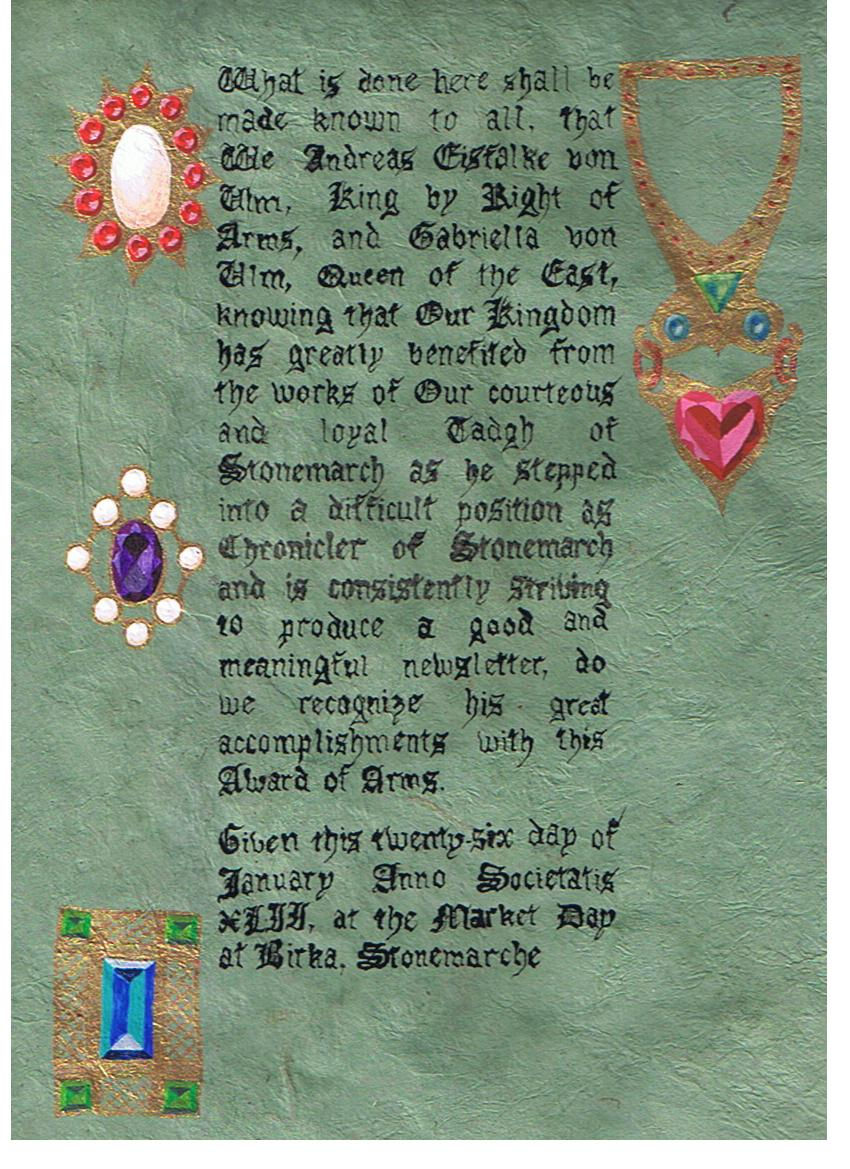 What is done here shall be
made known to all, that
We Andreas Eisfalke von
Ulm, King by Right of
Arms, and Gabriella von
Ulm, Queen of the East,
knowing that Our Kingdom
has greatly benefited from
the works of Our courteous
and loyal Tadgh of
Stonemarch as he stepped
into a difficult position as
Chronicler of Stonemarch
and is consistently striving
to produce a good and
meaningful newsletter, do
we recognize his great
accomplishments with this
Award of Arms.
Given this twenty-six day of
January Anno Societatis
XLII, at the Market Day
at Birka, Stonemarche